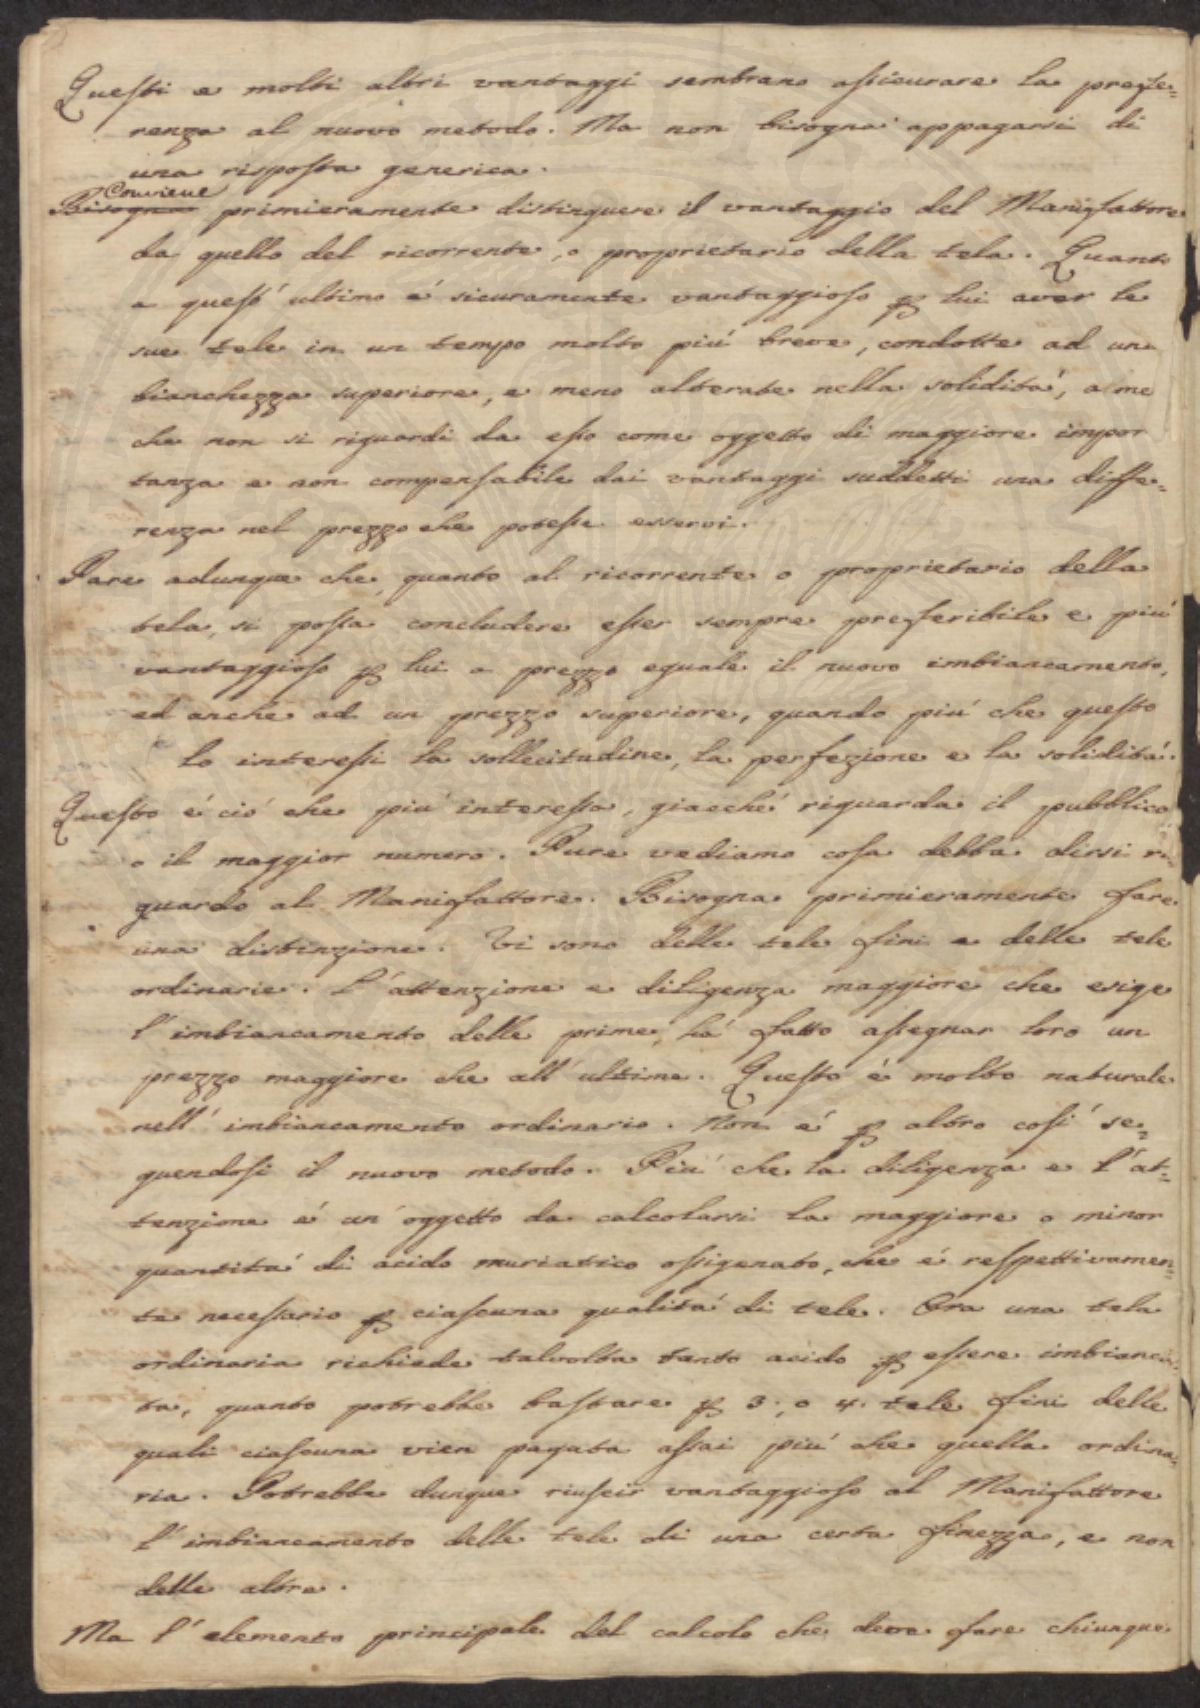 Questi e molti altri vantaggi sembrano assicurare la prefe=
renza al nuovo metodo. Ma non bisogna appagarsi di
una risposta generica.
Conviene
Bisogna primieramente distinguere il vantaggio del Manifattore
da quello del ricorrente, o proprietario della tela. Quanto
a quest' ultimo é sicuramente vantaggioso ꝑ lui aver le
sue tele in un tempo molto piú breve, condotte ad una
bianchezza superiore, e meno alterate nella soliditá, a me
che non si riguardi da esso come oggetto di maggiore impor
tanza e non compensabile dai vantaggi suddetti una diffe=
renza nel prezzo che potesse esservi.
Pare adunque che, quanto al ricorrente o proprietario della
tela, si possa concludere esser sempre preferibile e piú
vantaggioso ꝑ lui a prezzo eguale il nuovo imbiancamento,
ed anche ad un prezzo superiore, quando piú che questo
lo interessi la sollecitudine, la perfezione e la soliditá.
Questo é ció che piú interessa, giacché riguarda il pubblico
o il maggior numero. Pure vediamo cosa debba dirsi ri
guardo al Manifattore. Bisogna primieramente fare
una distinzione. Vi sono delle tele fini e delle tele
ordinarie. L'attenzione e diligenza maggiore che esige
l'imbiancamento delle prime, há fatto assegnar loro un
prezzo maggiore che all' ultime. Questo é molto naturale
nell' imbiancamento ordinario. Non é ꝑ altro cosí se=
guendosi il nuovo metodo. Piú che la diligenza e l'at=
tenzione é un' oggetto da calcolarsi la maggiore o minor
quantitá di acido muriatico ossigenato, che é respettivamen=
te necessario ꝑ ciascuna qualitá di tele. Ora una tela
ordinaria richiede talvolta tanto acido ꝑ essere imbianca
ta, quanto potrebbe bastare ꝑ 3., o 4. tele fini delle
quali ciascuna vien pagata assai piú che quella ordina=
ria. Potrebbe dunque riuscir vantaggioso al Manifattore
l'imbiancamento delle tele di una certa finezza, e non
delle altre.
Ma l'elemento principale del calcolo che deve fare chiunque